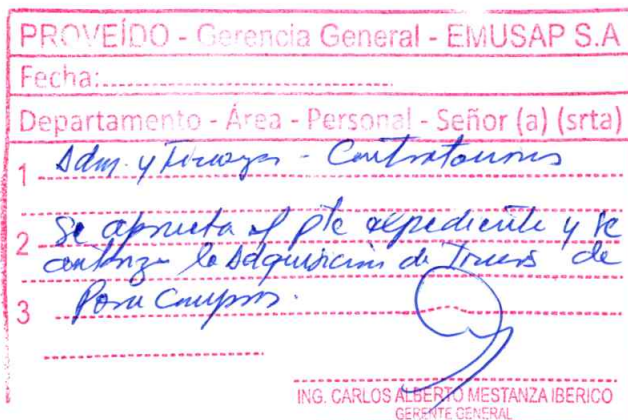 PROVEÍDO - Gerencia General - EMUSAP S.A
Fecha:
Departamento - Área - Personal - Señor (a) (srta)
1 Adm. y Finanzas - Contrataciones
2 Se aprueba el pte expediente y se
autoriza la Adquisición de de
3 Para
ING. CARLOS ALBERTO MESTANZA IBERICO
GERENTE GENERAL